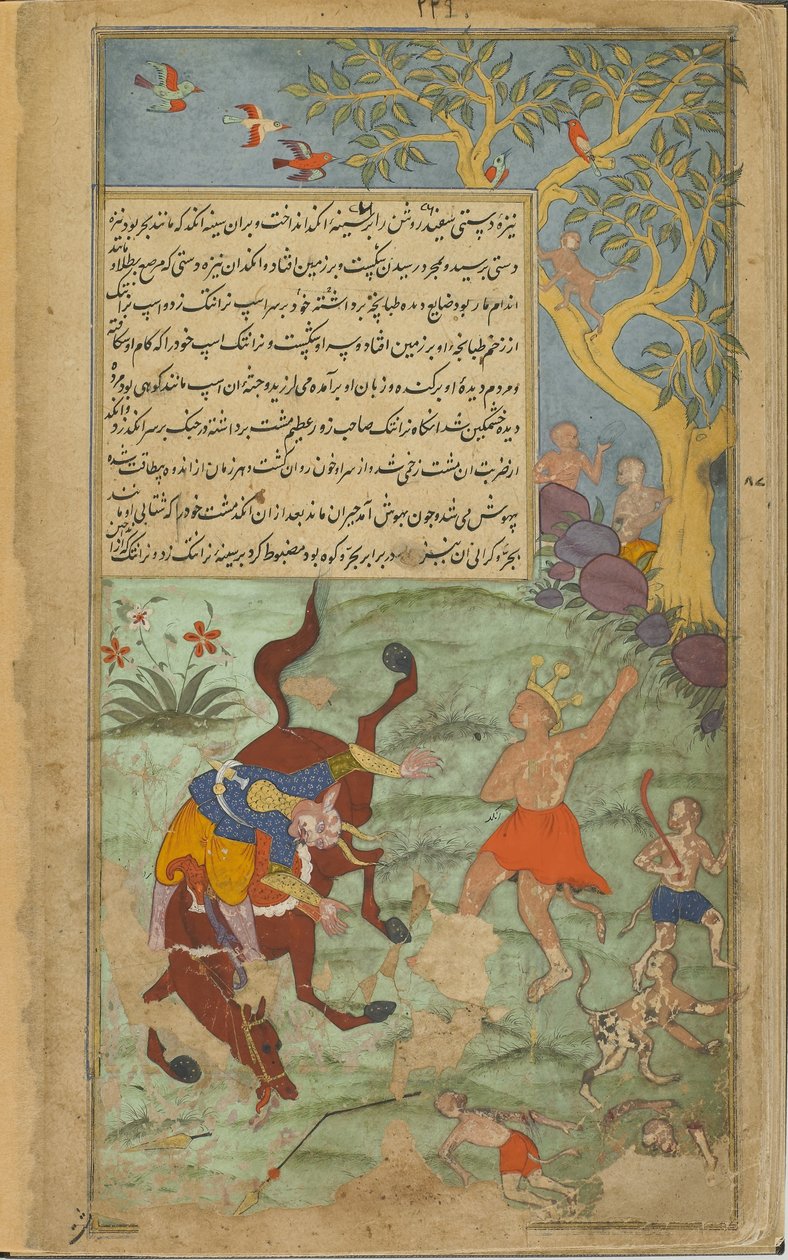 ۲۲۹
نیزهٔ دستی سفید روشن را برسینهٔ انکد انداخت و بران سینهٔ انکد که مانند بجر بود نیزه
دستی برسید و بمجرد رسیدن بشکست و بر زمین افتاد و انکد ان نیزه دستی که مرصع بطلا و مانند
اندام مار بود ضایع دیده طپانچه برداشته خود بر سر اسپ نرانتک زد و اسپ نرانتک
از زخم طپانچهٔ او بر زمین افتاد و سر او بشکست و نرانتک اسپ خود را که کام او شکافته
و مردم دیدهٔ او برکنده و زبان او برآمده می لرزید و جثهٔ ان اسپ مانند کوهی بود مرده
دیده خشمکین شد انکاه نرانتک صاحب زور عظیم مشت برداشته در جنک بر سر انکد زد و انکد
از ضربت ان مشت زخمی شد و از سر او خون روان کشت و هر زمان از اندوه بیطاقت شده
بیهوش می شد و چون بهوش آمد حیران ماند بعد ازان انکد مشت خود را که شتابی او مانند
بجر و کرانی ان در برابر بجر و کوه بود مضبوط کرد بر سینهٔ نرانتک زد و نرانتک که ازان
انکد